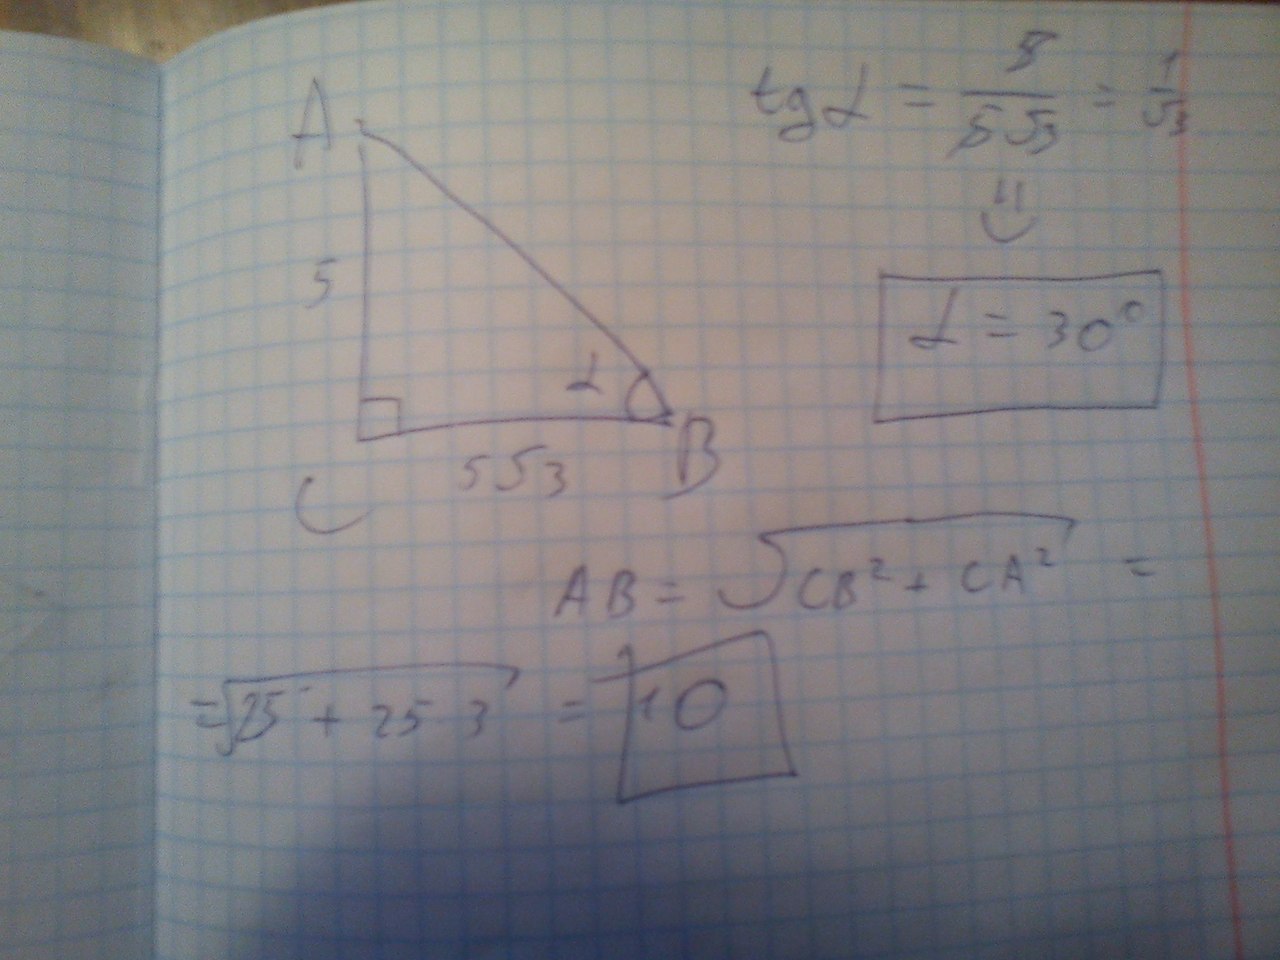 A
5
C
5√3
α
B
tg α = 5/5√3 = 1/√3
⇓
α = 30°
AB = √(CB² + CA²) =
= √(25 + 25·3) = 10